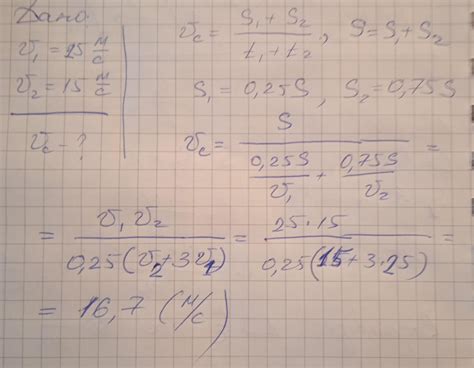 Дано
υ₁ = 25 м/с
υ₂ = 15 м/с
υc - ?
υc = (S₁ + S₂)/(t₁ + t₂), S = S₁ + S₂
S₁ = 0,25S, S₂ = 0,75S
υc = S/(0,25S/υ₁ + 0,75S/υ₂) =
= υ₁υ₂/(0,25(υ₂ + 3υ₁)) = 25·15/(0,25(15 + 3·25)) =
= 16,7 (м/с)